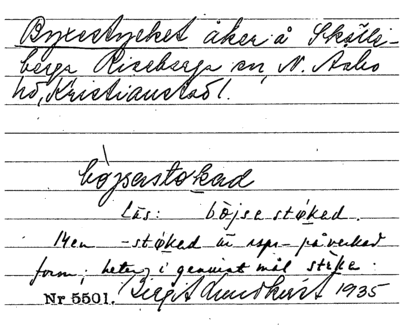 Byxestycket åker å Skälle-
berga Riseberga sn, N. Åsbo
hd, Kristianstad l.
böjsastokad
Läs: böjsestøked.
14 en -støked är rspr-påverkad
form; heter i genuint mål
Nr 5501. Birgit Lundkvist 1935